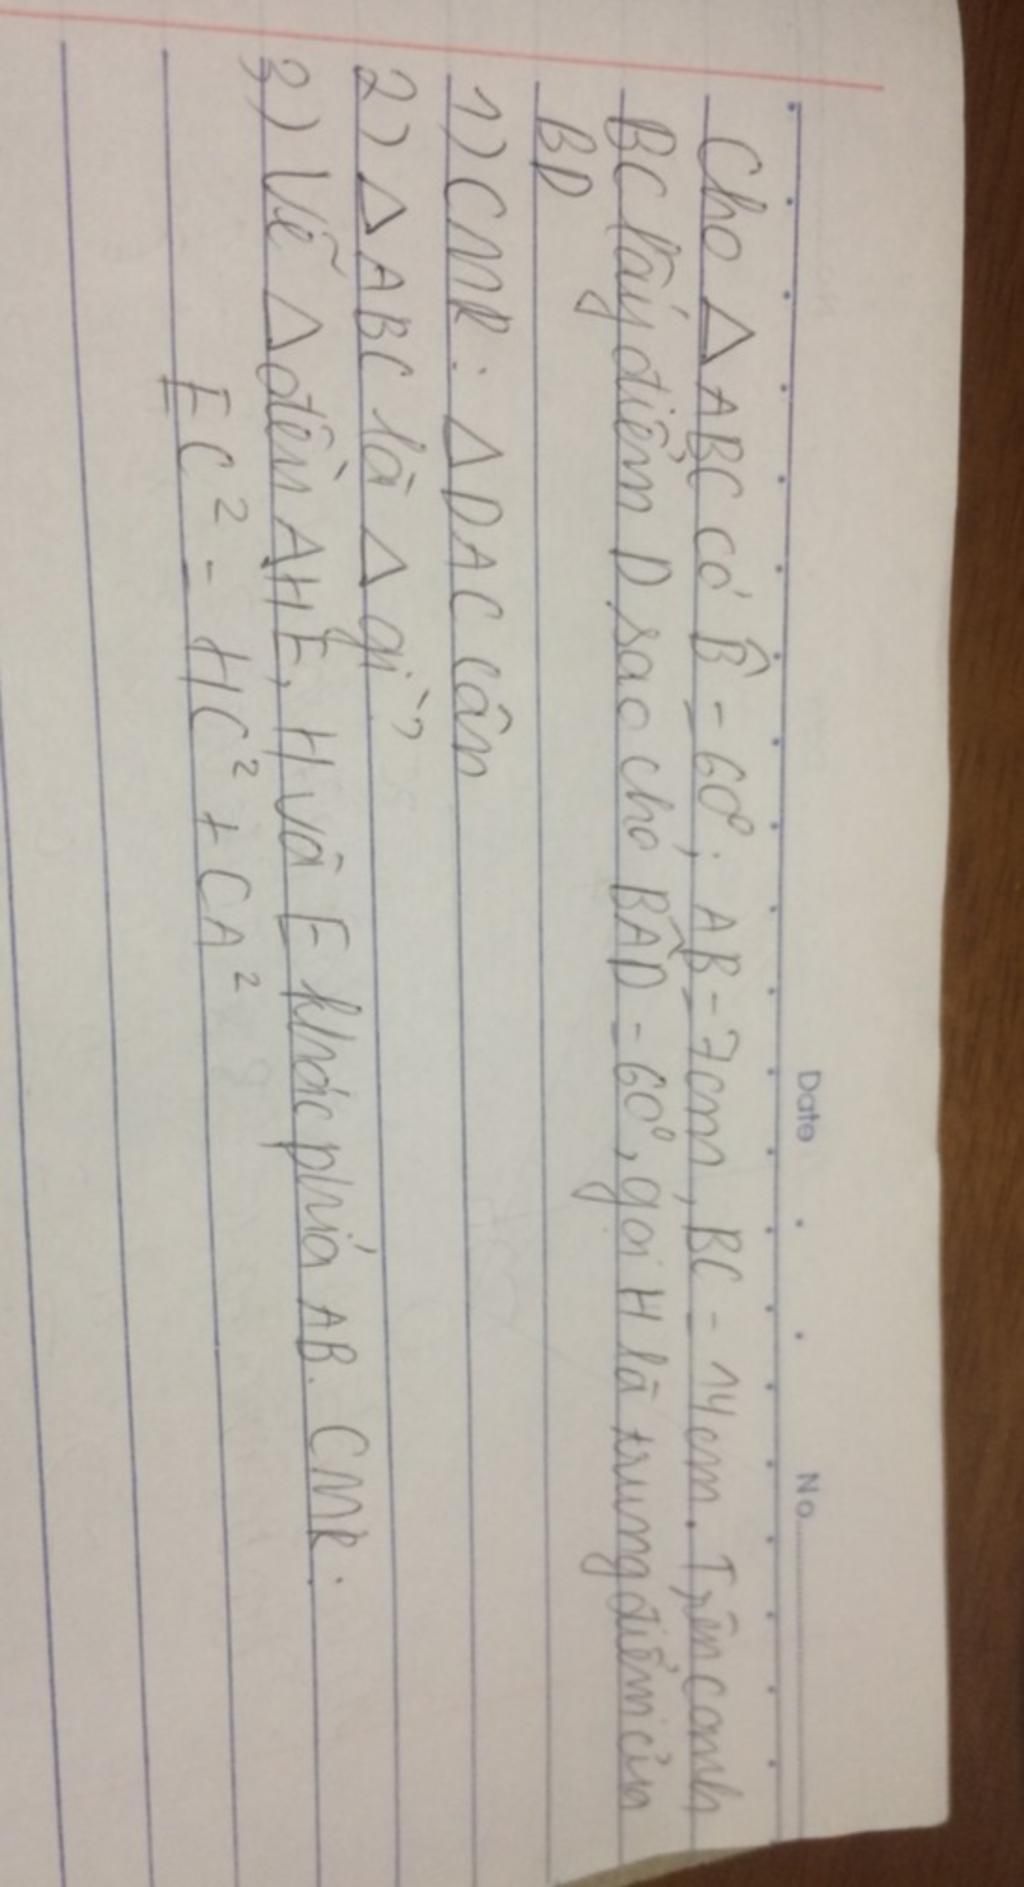 Date
No
Cho △ABC có B̂ = 60°; AB = 7cm, BC = 14cm. Trên cạnh
BC lấy điểm D sao cho BÂD = 60°, gọi H là trung điểm của
BD
1) CMR: △DAC cân
2) △ABC là △gì?
3) Vẽ △đều AHE, H và E khác phía AB. CMR:
EC² = HC² + CA²